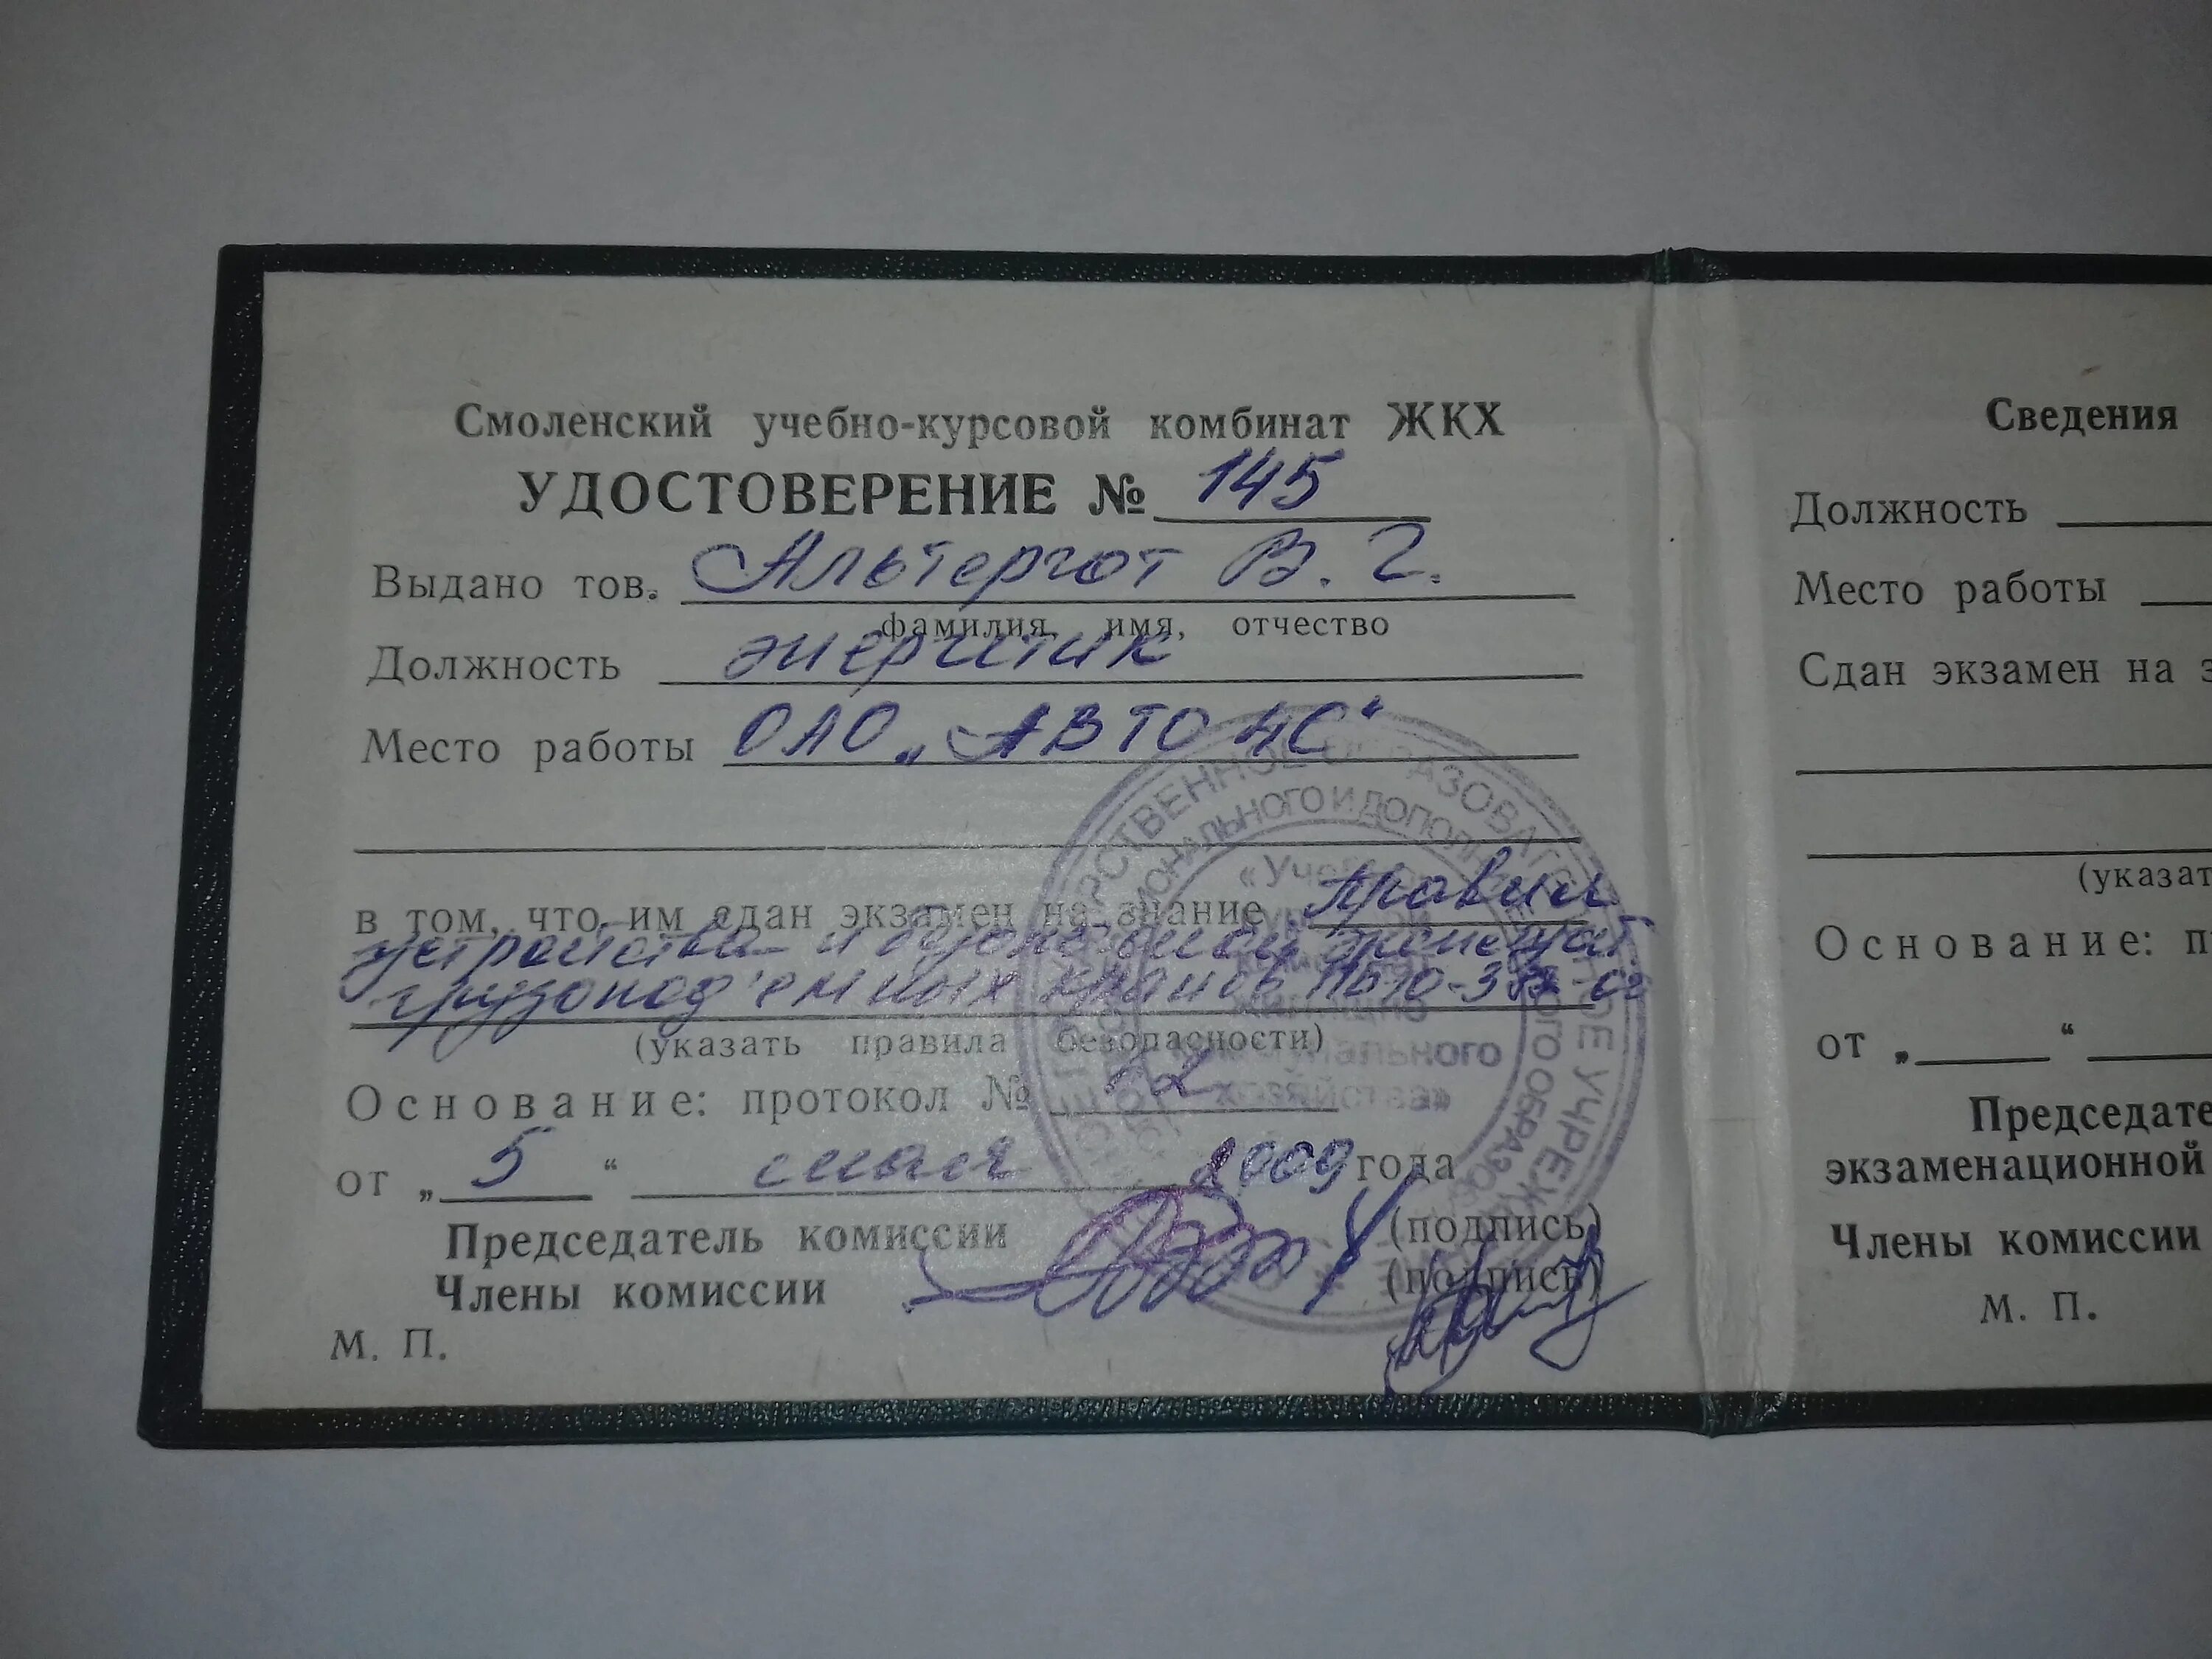 Смоленский учебно-курсовой комбинат ЖКХ
УДОСТОВЕРЕНИЕ № 145
Выдано тов. Альтергот В. Г.
фамилия, имя, отчество
Должность энергетик
Место работы ОАО „АВТО АС“
в том, что им сдан экзамен на знание правил
устройства и безопасной эксплуат.
грузопод'емных кранов ПБ 10-382-00
(указать правила безопасности)
Основание: протокол № 22
от „ 5 “ июня 2009 года
Председатель комиссии (подпись)
Члены комиссии (подпись)
М. П.
«Учебно-
коммунального
хозяйства»
Сведения
Должность
Место работы
Сдан экзамен на з
(указат
Основание: п
от „ “
Председате
экзаменационной
Члены комиссии
М. П.